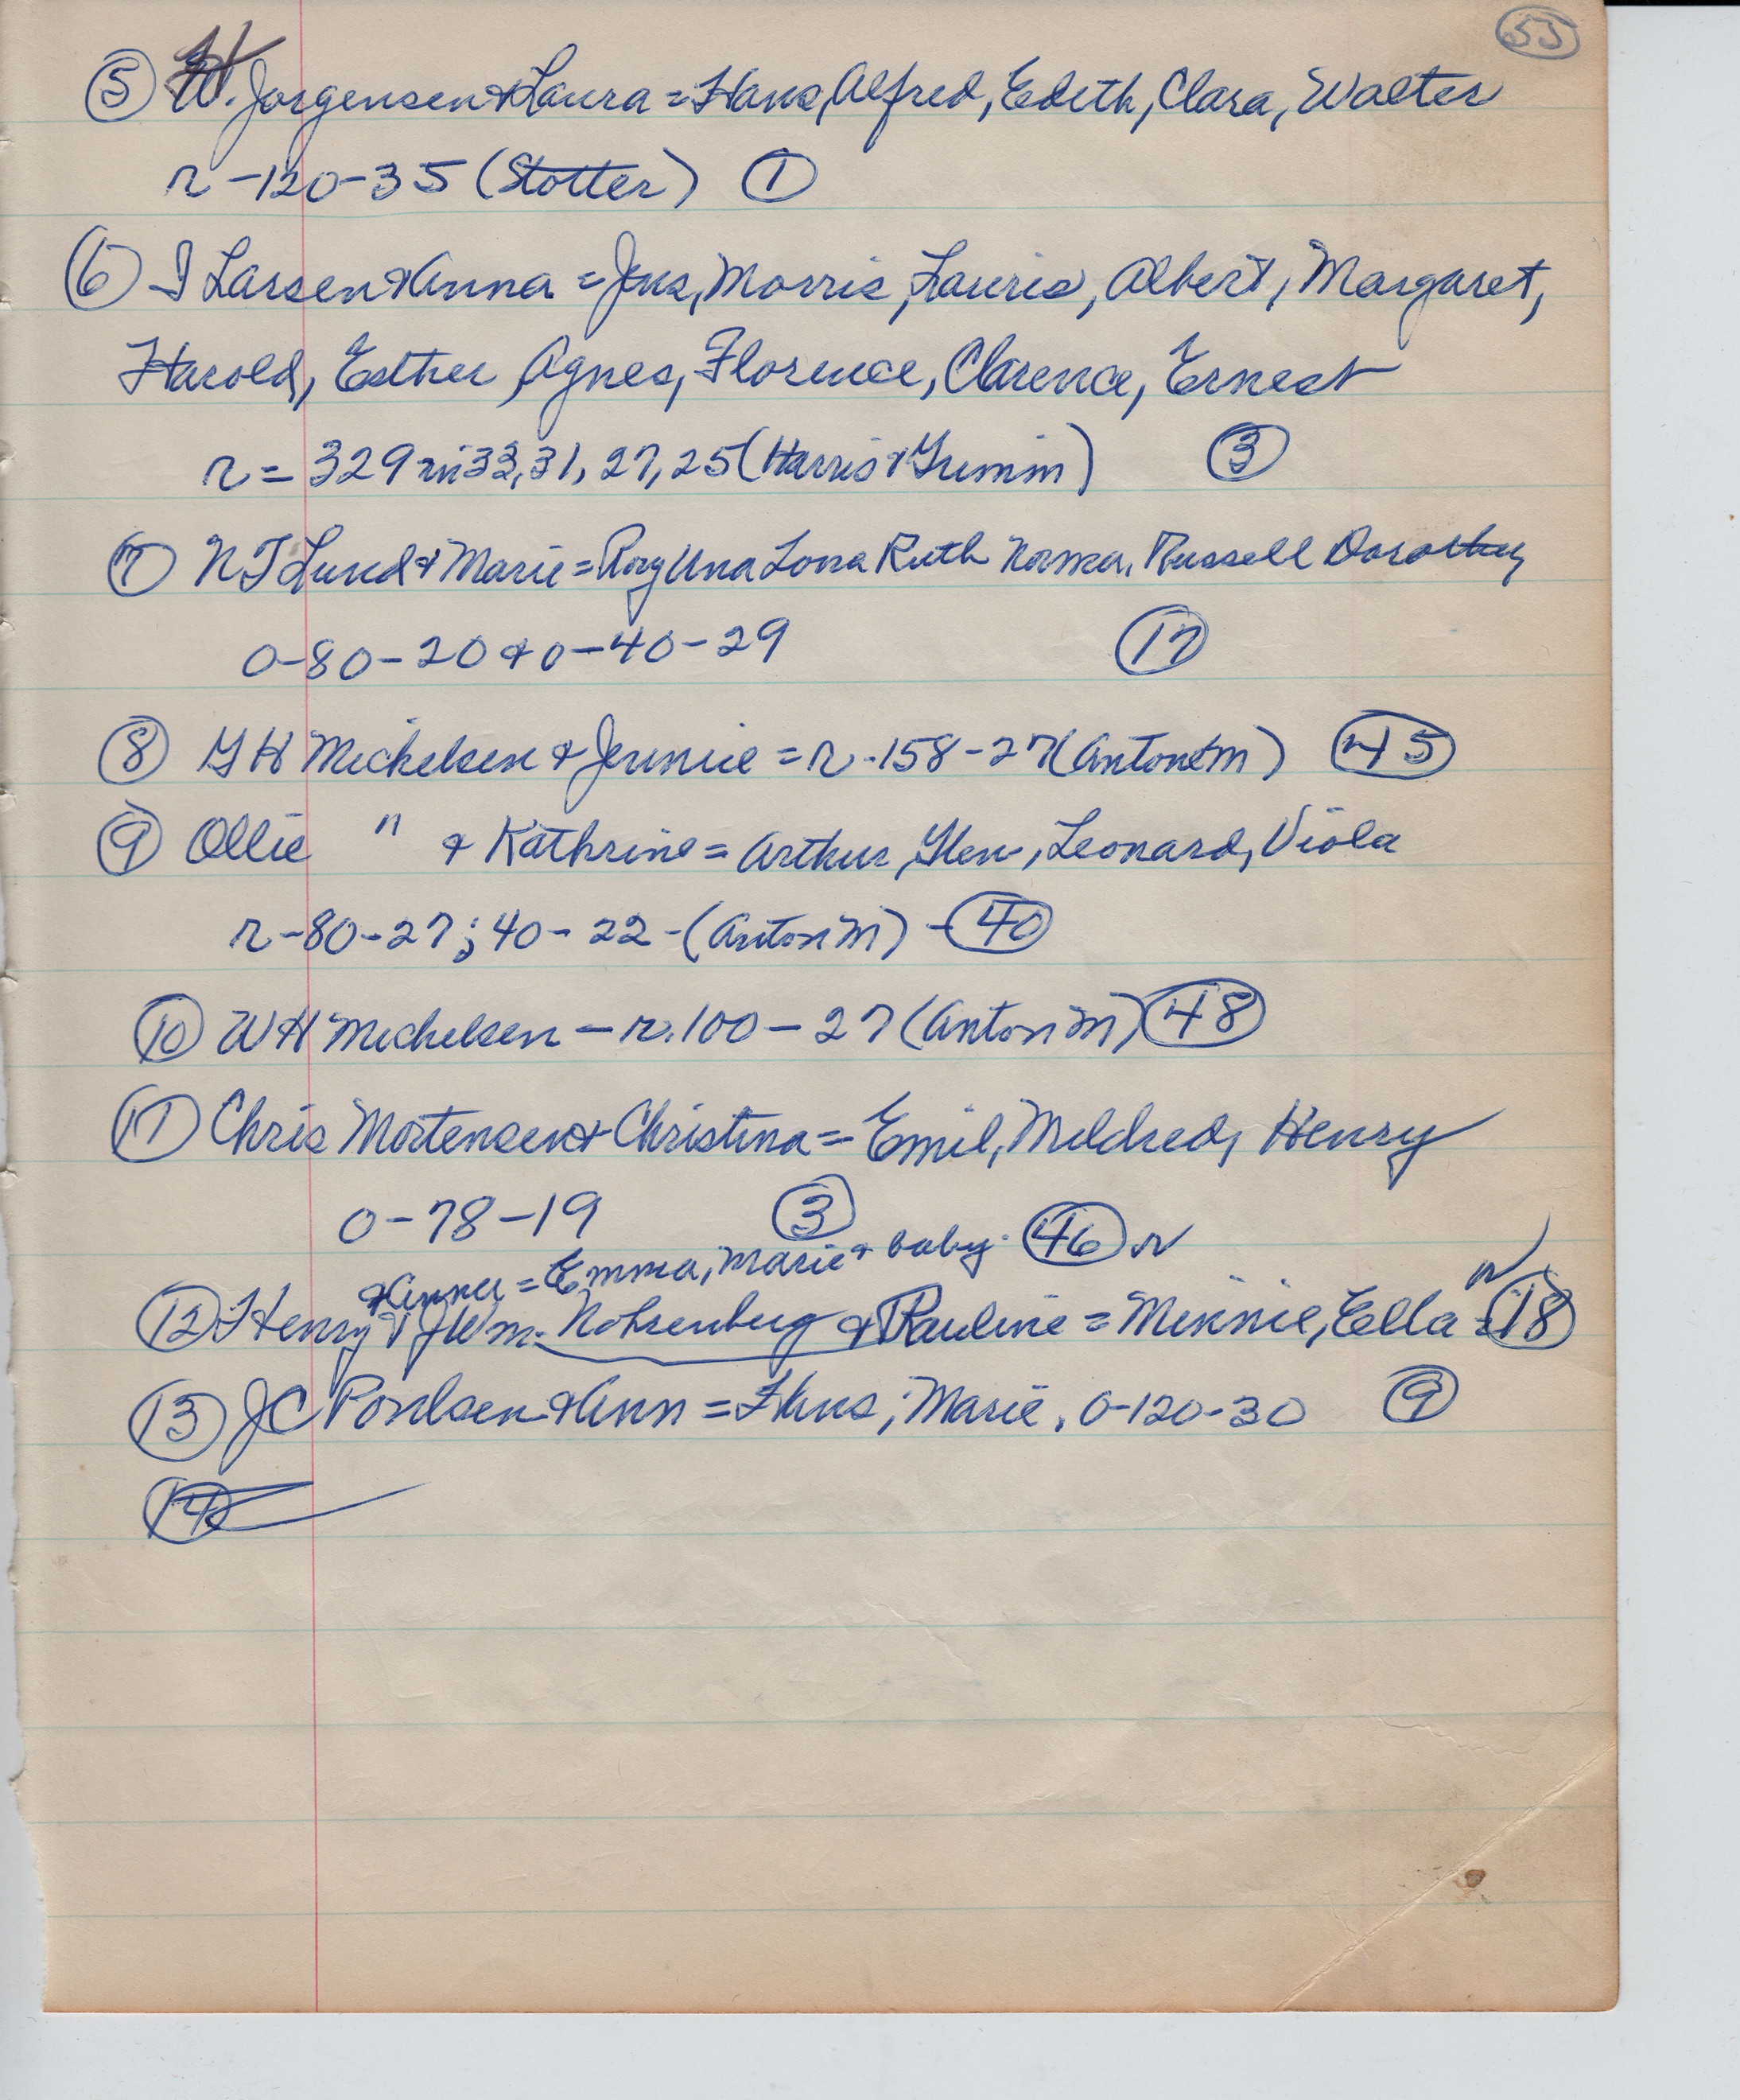 53
⑤ H. Jorgensen & Laura = Hans, Alfred, Edith, Clara, Walter
r-120-35 (Stotter) ①
⑥ I Larsen & Anna = Jens, Morris, Lauris, Albert, Margaret,
Harold, Esther, Agnes, Florence, Clarence, Ernest
r = 329 in 33, 31, 27, 25 (Harris & Grimm) ③
⑦ N J Lund & Marie = Roy Una Lona Ruth Norma, Russell Dorothy
0-80-20 & 0-40-29 ⑰
⑧ G H Mickelsen & Jennie = r-158-27 (Anton M) ㊺
⑨ Ollie " & Kathrine = Arthur, Glen, Leonard, Viola
r-80-27; 40-22-(Anton M) - ㊵
⑩ W H Mickelsen - r.100-27 (Anton M) ㊽
⑪ Chris Mortensen & Christina = Emil, Mildred, Henry
0-78-19 ③
& Anna = Emma, Marie & baby. ㊻ r
⑫ Henry & J Wm. Nohrenberg & Pauline = Minnie, Ella = r ⑱
⑬ J C Poulsen & Ann = Hans, Marie, 0-120-30 ⑨
⑭